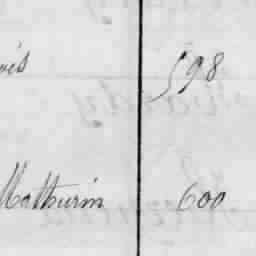 598
Mathurin 600